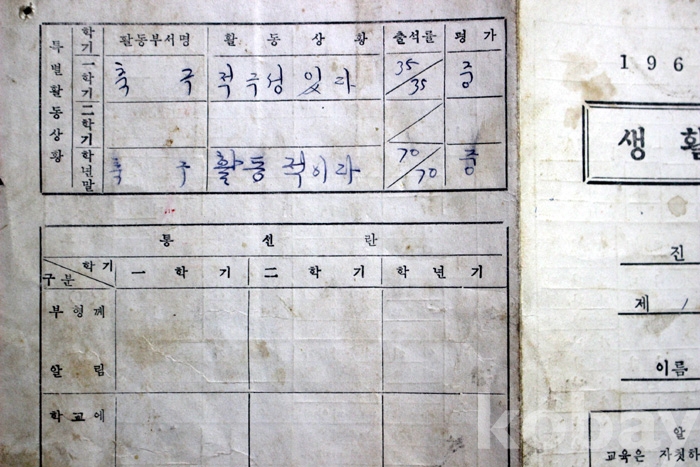 특별활동상황
학기 활동부서명 활동상황 출석률 평가
一학기 축구 적극성 있다 35/35 중
二학기
학년말 축구 활동적이다 70/70 중
통신란
구분 학기 一학기 二학기 학년기
부형께
알림
학교에
196
생활
진
제 /
이름
알
교육은 자칫하
kobay